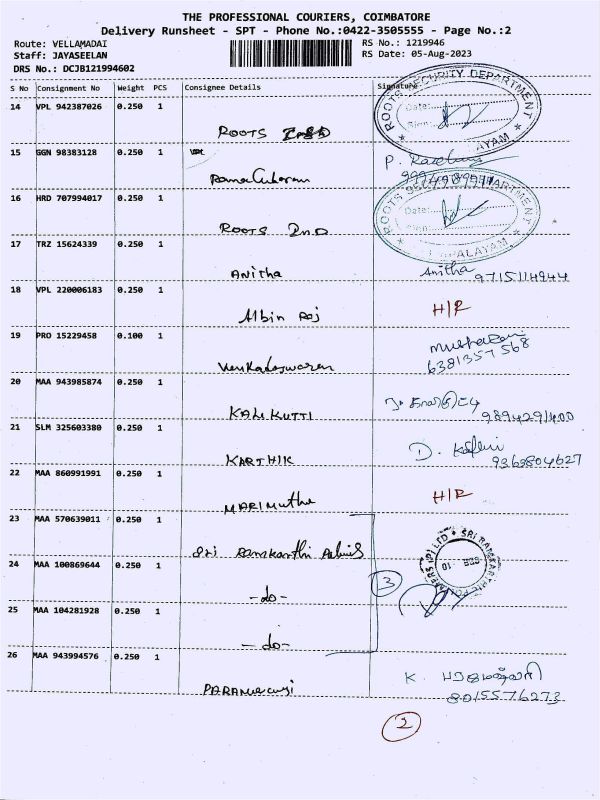 THE PROFESSIONAL COURIERS, COIMBATORE
Delivery Runsheet - SPT - Phone No.:0422-3505555 - Page No.:2
Route: VELLAMADAI
RS No.: 1219946
Staff: JAYASEELAN
RS Date: 05-Aug-2023
DRS No.: DCJB121994602
S No Consignment No Weight PCS Consignee Details Signature
14 VPL 942387026 0.250 1
ROOTS
ROOTS SECURITY DEPARTMENT
Date:
Sign:
15 GGN 98383128 0.250 1
P.
16 HRD 707994017 0.250 1
ROOTS IND
ROOTS SECURITY DEPARTMENT
Date:
Sign:
17 TRZ 15624339 0.250 1
ANITHA Anitha 9715114944
18 VPL 220006183 0.250 1
Albin Roj H/R
19 PRO 15229458 0.100 1
Venkadeswaran 6381357568
20 MAA 943985874 0.250 1
KALIKUTTI 9894291400
21 SLM 325603380 0.250 1
KARTHIK D. 9363804627
22 MAA 860991991 0.250 1
MARIMUTHU H/R
23 MAA 570639011 0.250 1
Sri
24 MAA 100869644 0.250 1
-do- 3
25 MAA 104281928 0.250 1
-do-
26 MAA 943994576 0.250 1
K. 8015576273
2